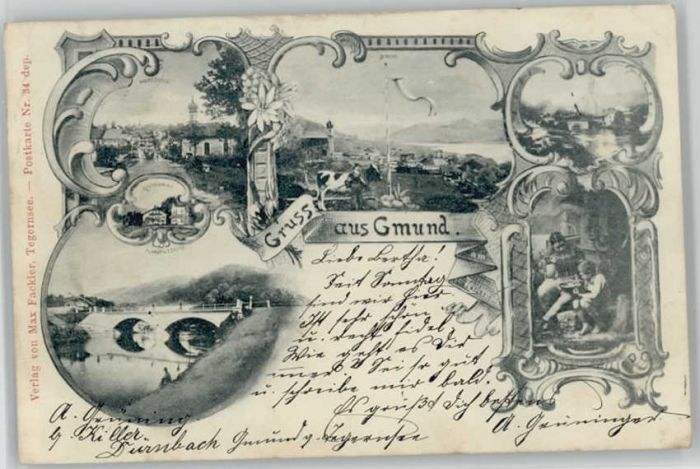 Verlag von Max Fackler, Tegernsee. — Postkarte Nr. 34 dep.
Gruss aus Gmund.
Liebe Bertha!
Seit Sonntag
sind wir hier
Ist sehr schön
u. recht fidel.
Wie geht es Dir
immer? Sei so gut
u. schreibe mir bald.
Es grüßt Dich bestens
A. Grüninger
A. Grüning
b/ Killer
Dürnbach Gmund a. Tegernsee